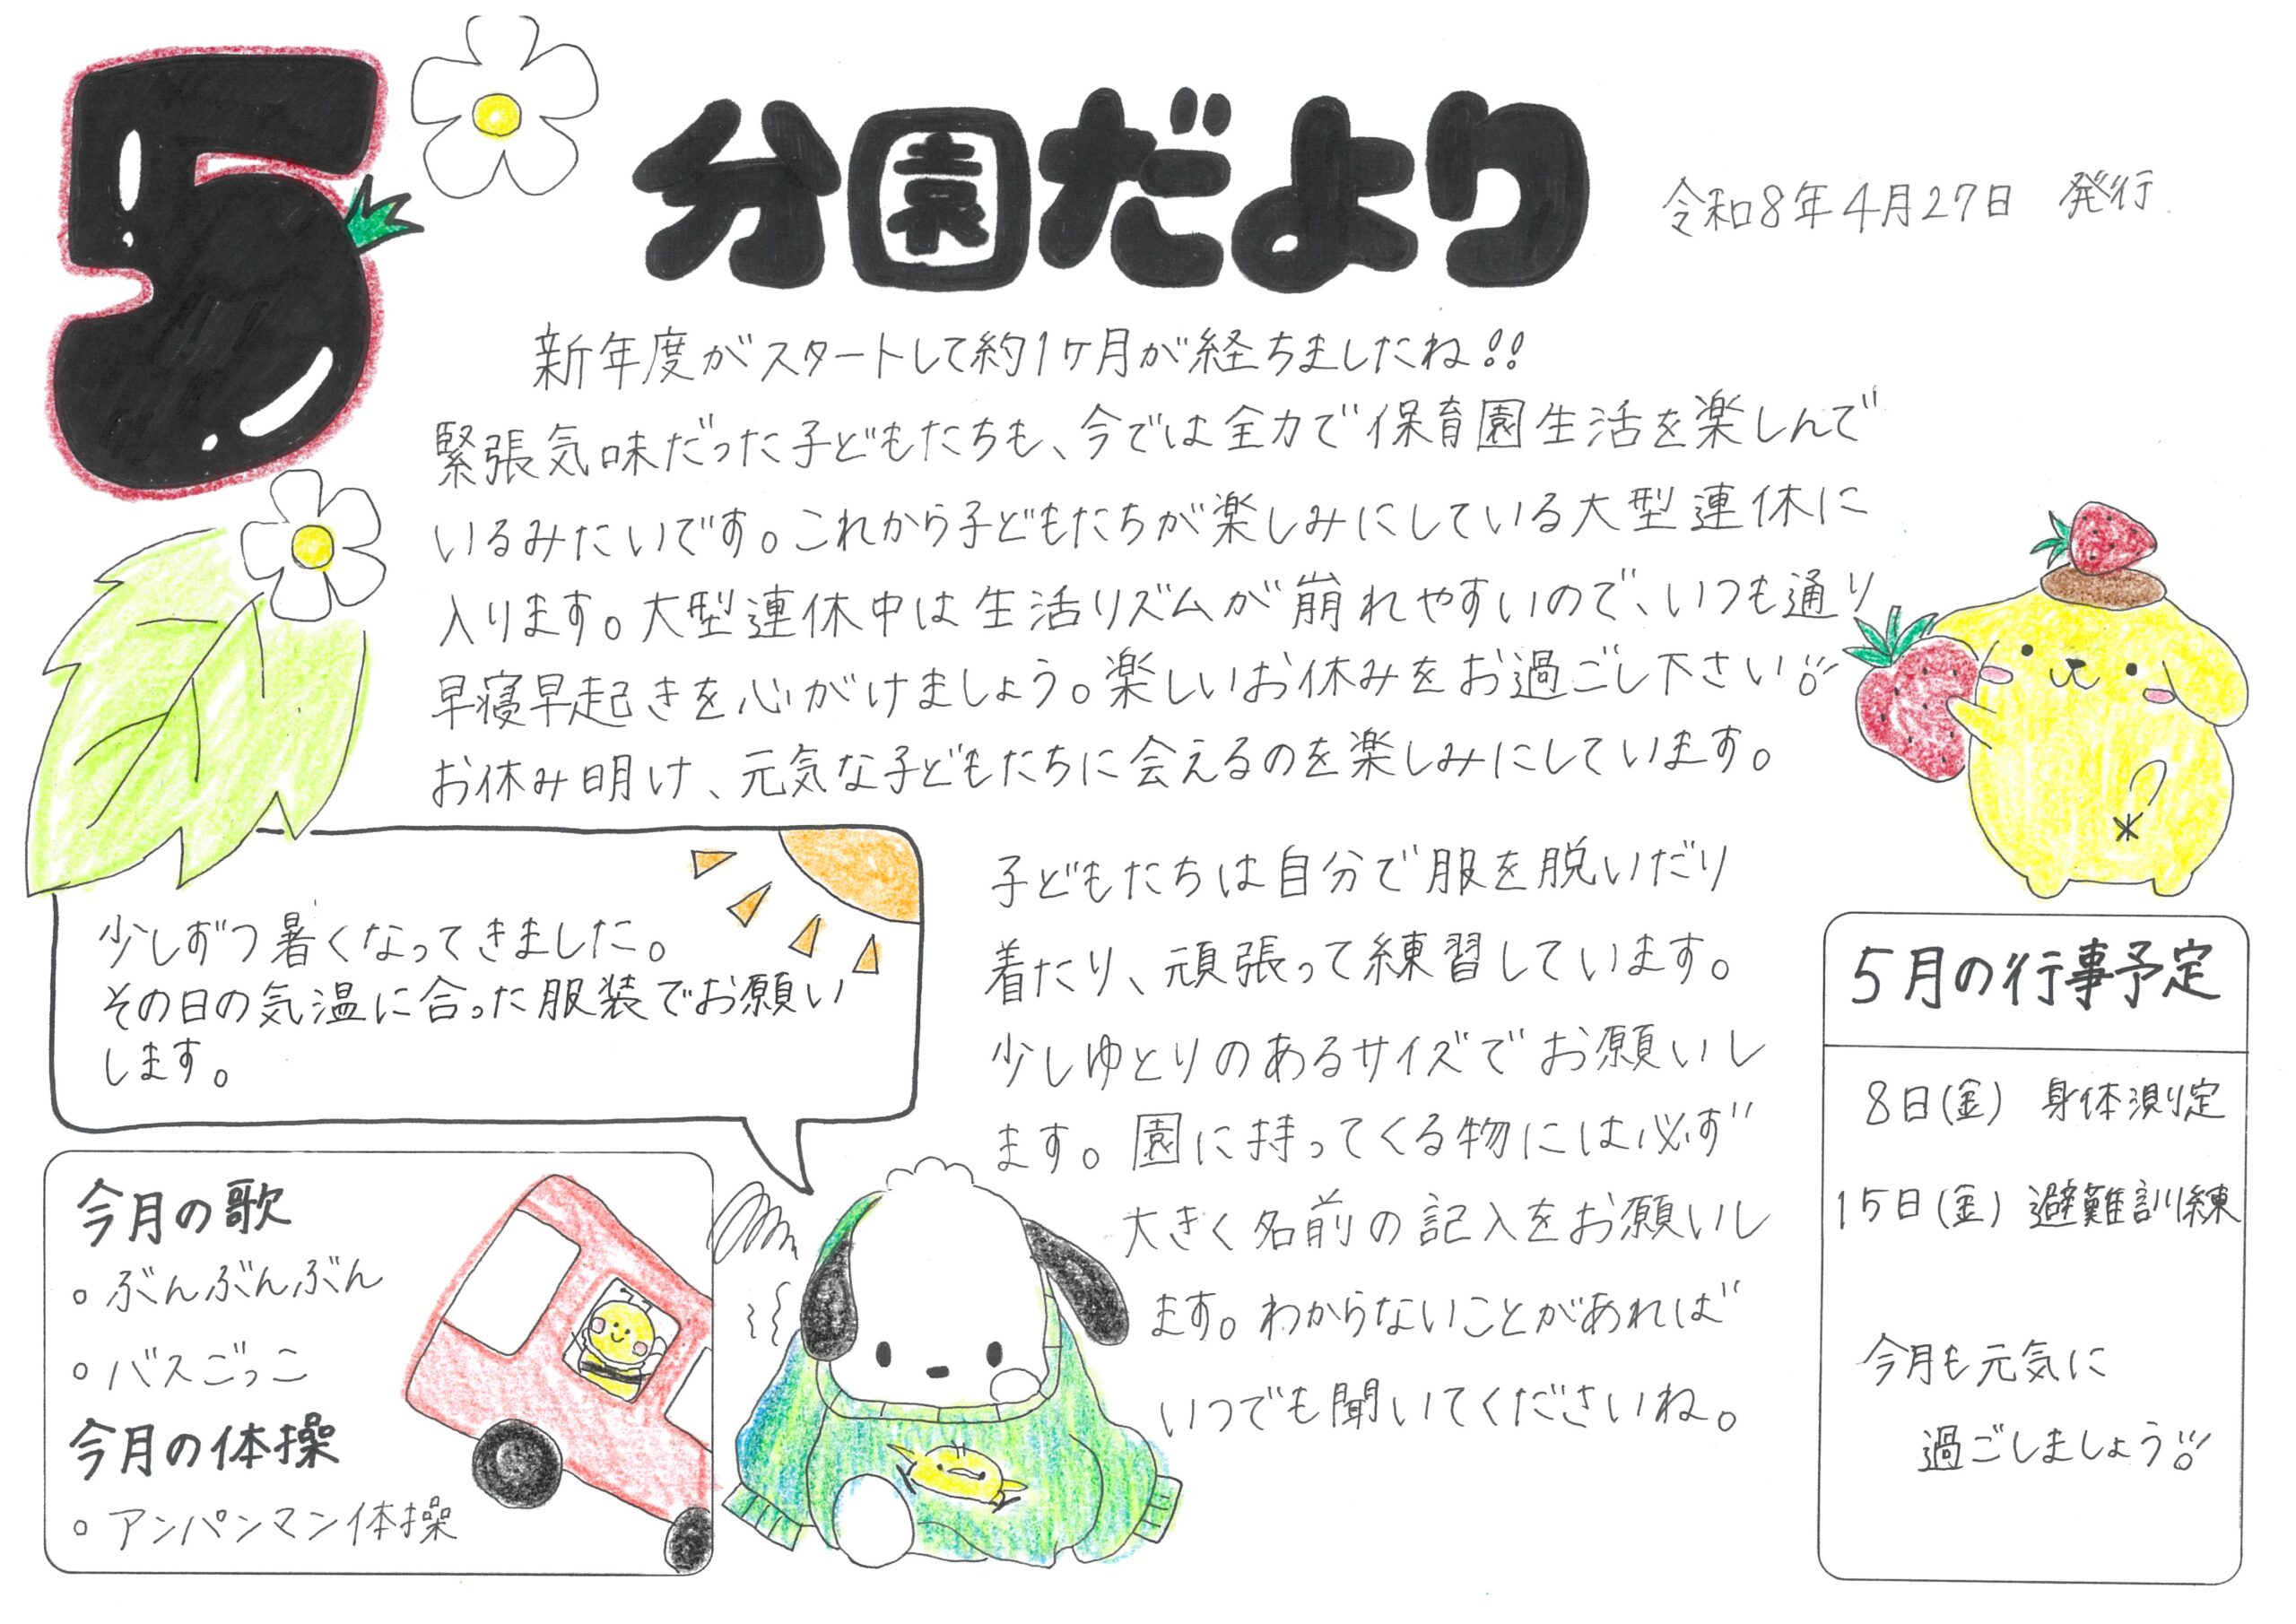 5
分園だより
令和8年4月27日 発行
新年度がスタートして約1ヶ月が経ちましたね!!
緊張気味だった子どもたちも、今では全力で保育園生活を楽しんで
いるみたいです。これから子どもたちが楽しみにしている大型連休に
入ります。大型連休中は生活リズムが崩れやすいので、いつも通り
早寝早起きを心がけましょう。楽しいお休みをお過ごし下さい!!
お休み明け、元気な子どもたちに会えるのを楽しみにしています。
少しずつ暑くなってきました。
その日の気温に合った服装でお願い
します。
子どもたちは自分で服を脱いだり
着たり、頑張って練習しています。
少しゆとりのあるサイズでお願いし
ます。園に持ってくる物には必ず
大きく名前の記入をお願いし
ます。わからないことがあれば
いつでも聞いてくださいね。
今月の歌
。ぶんぶんぶん
。バスごっこ
今月の体操
。アンパンマン体操
5月の行事予定
8日(金) 身体測定
15日(金) 避難訓練
今月も元気に
過ごしましょう!!